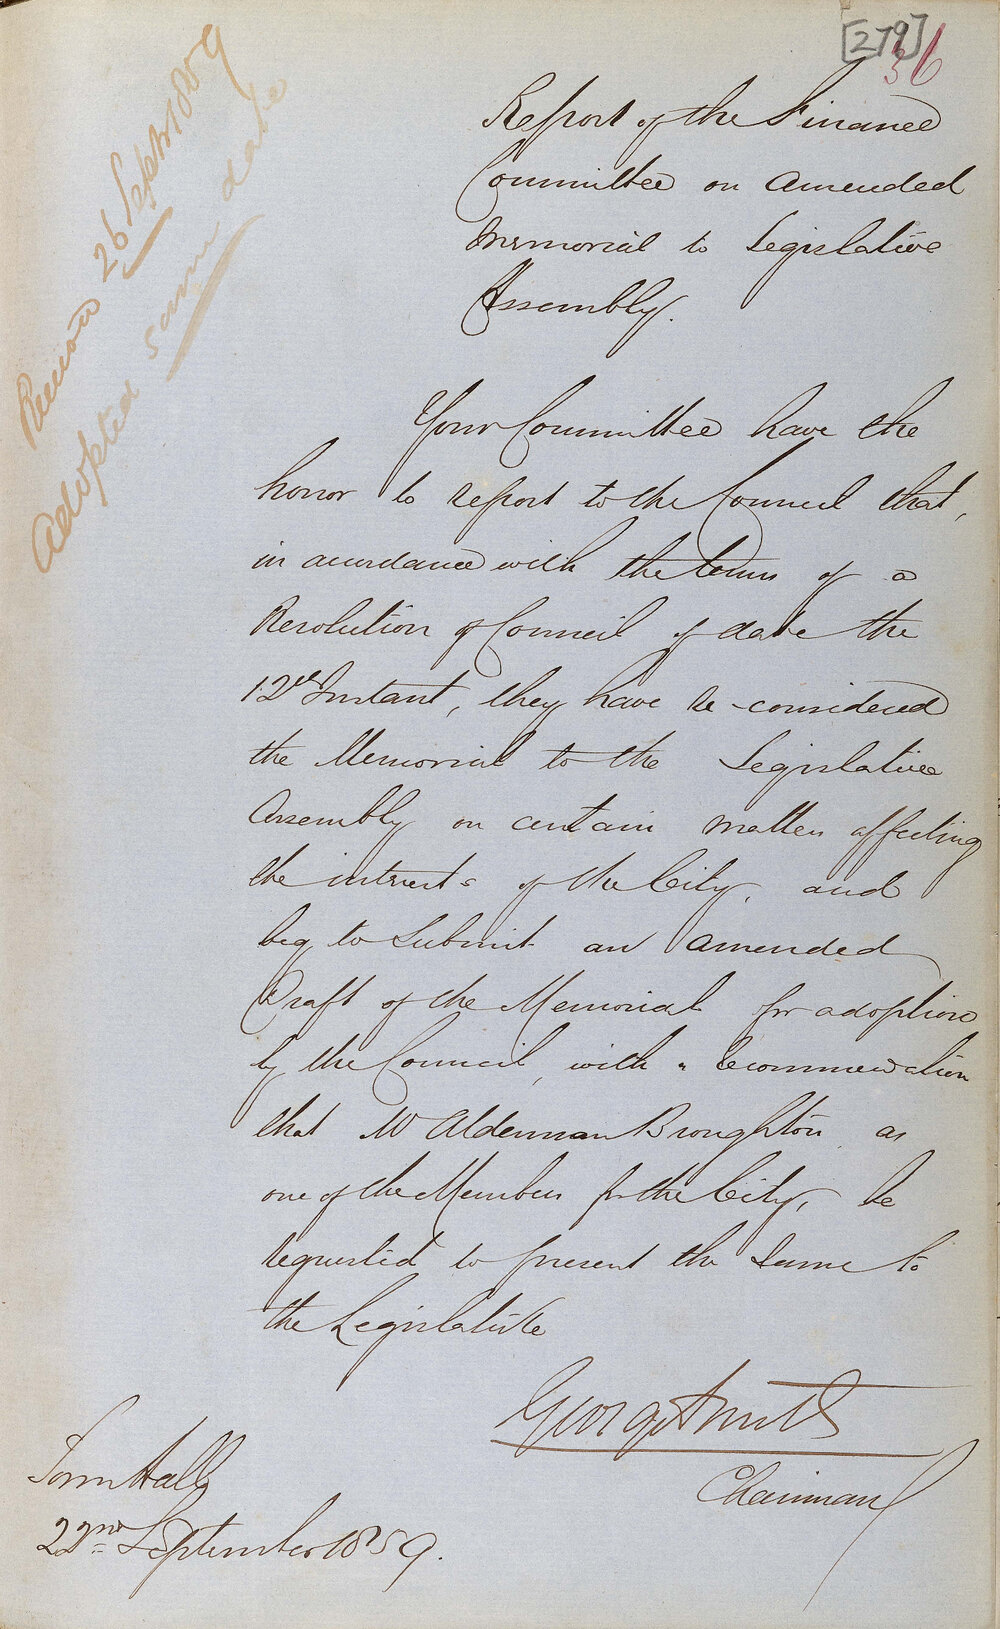 [279]
36
Received 26 Septr 1859
Adopted same date
Report of the Finance
Committee on amended
Memorial to Legislative
Assembly.
Your Committee have the
honor to report to the Council that,
in accordance with the terms of a
Resolution of Council of date the
12th Instant, they have re-considered
the Memorial to the Legislative
Assembly on certain matters affecting
the interests of the City, and
beg to submit an amended
Draft of the Memorial for adoption
by the Council, with a recommendation
that Mr Alderman Broughton as
one of the Members for the City, be
requested to present the same to
the Legislature
George Smith
Chairman
Town Hall
22nd September 1859.